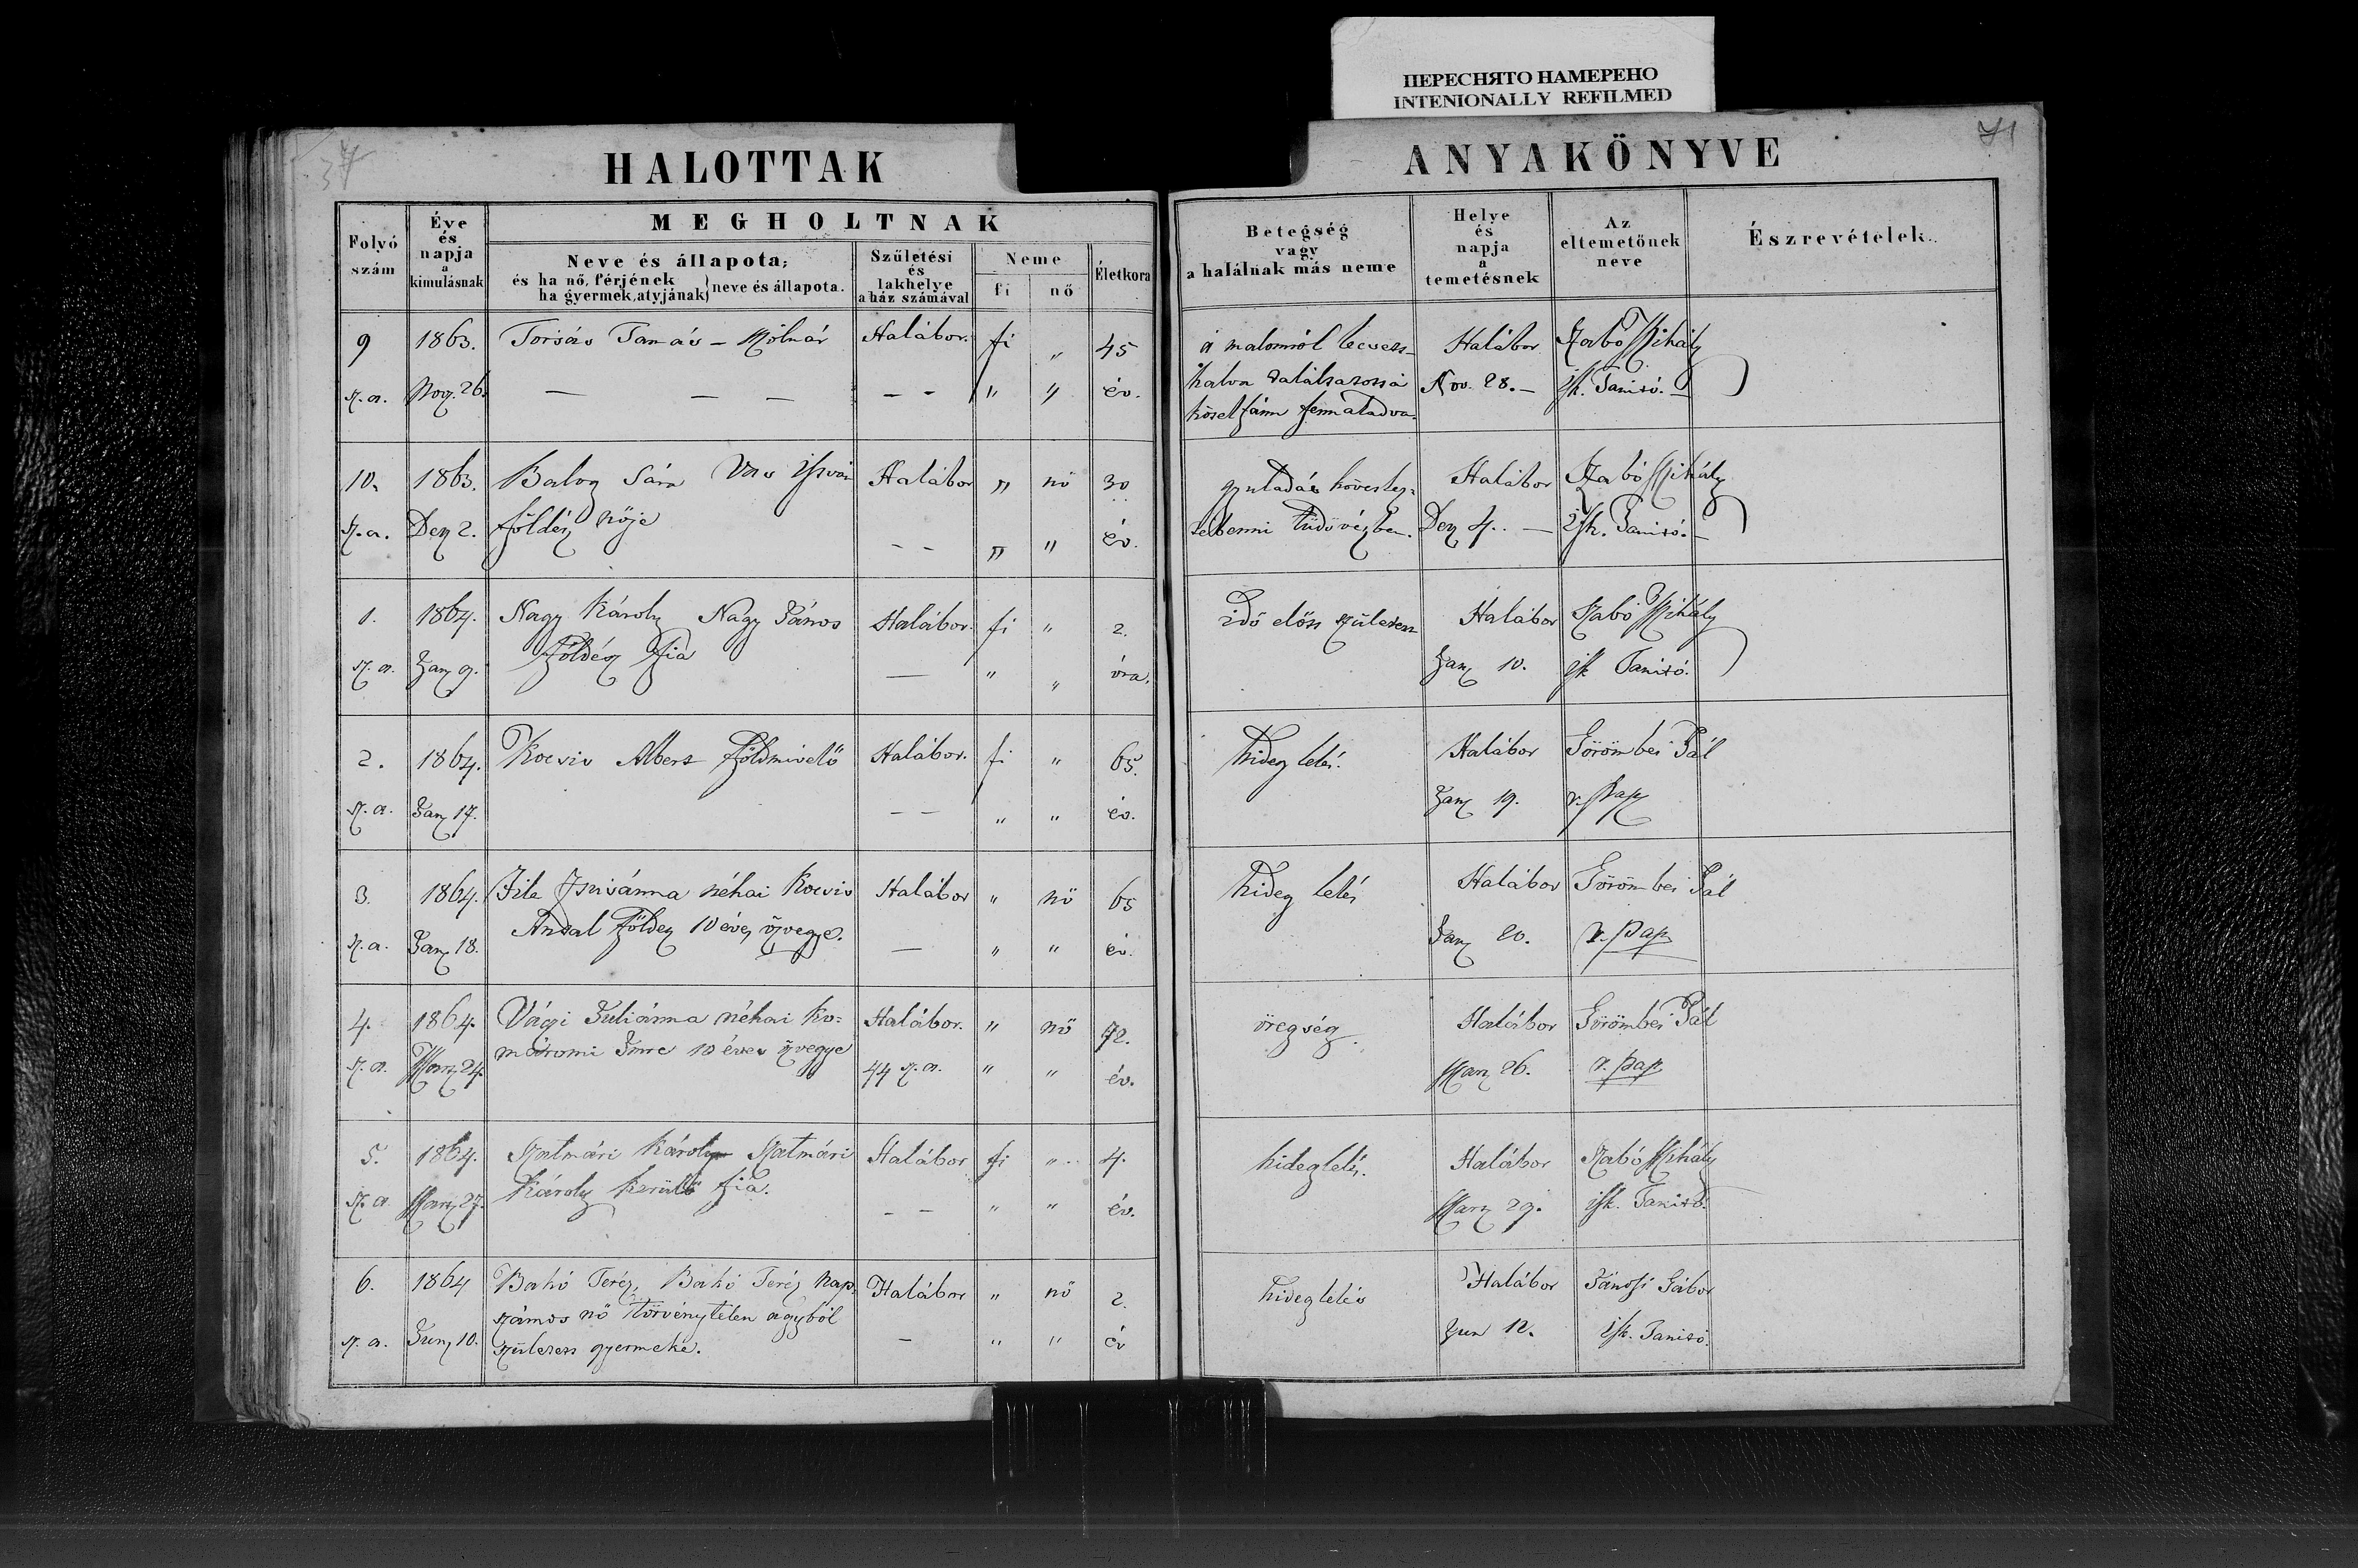 ПЕРЕСНЯТО НАМЕРЕНО
INTENIONALLY REFILMED
37
71
HALOTTAK
ANYAKÖNYVE
Folyó szám
Éve és napja a kimulásnak
MEGHOLTNAK
Neve és állapota;
és ha nő, férjének
ha gyermek, atyjának
neve és állapota.
Születési és lakhelye a ház számával
Neme
fi
nő
Életkora
Betegség vagy a halálnak más neme
Helye és napja a temetésnek
Az eltemetőnek neve
Észrevételek.
9 1863. Tamás – Molnár Halábor. fi „ 45 a malomról Halábor Szabó Mihály
sz. a. Nov. 26. — — — – – „ „ év. Nov. 28. – isk. Tanitó. –
10. 1863. Balog Sára Vas István Halábor „ nő 30 Halábor Szabó Mihály
sz. a. Dez 2. földész nője – – „ „ év. tüdővészben. Dez 4. – isk. Tanitó. –
1. 1864. Nagy Károly Nagy János Halábor. fi „ 2. idő előtt született Halábor Szabó Mihály
sz. a. Jan 9. földész fia — „ „ óra. Jan 10. isk Tanitó.
2. 1864. Kocsis Albert földmivelő Halábor. fi „ 65. hideg lelés. Halábor Görömbei Pál
sz. a. Jan 17. – – „ „ év. Jan 19. r. Pap
3. 1864. Susánna néhai Kocsis Halábor „ nő 65 hideg lelés Halábor Görömbei Pál
sz. a. Jan 18. Antal földész 10 éves özvegye. — „ „ év. Jan 20. r. pap
4. 1864. Vági Juliánna néhai Ko= Halábor. „ nő 72. öregség. Halábor Görömbei Pál
sz. a. Marz 24. máromi Imre 10 éves özvegye 44 sz. a. „ „ év. Marz 26. r. pap
5. 1864. Szatmári Károly Szatmári Halábor fi „ 4. hideglelés. Halábor Szabó Mihály
sz. a. Marz 27. Károly kerülő fia. – – „ „ év. Marz 29. isk. Tanitó.
6. 1864 Bakó Teréz, Bakó Teréz nap= Halábor „ nő 2. hideglelés Halábor Jánosi Gábor
számos nő törvénytelen ágyból
sz. a. Jun 10. született gyermeke. – „ „ év Jun 12. isk. Tanitó.